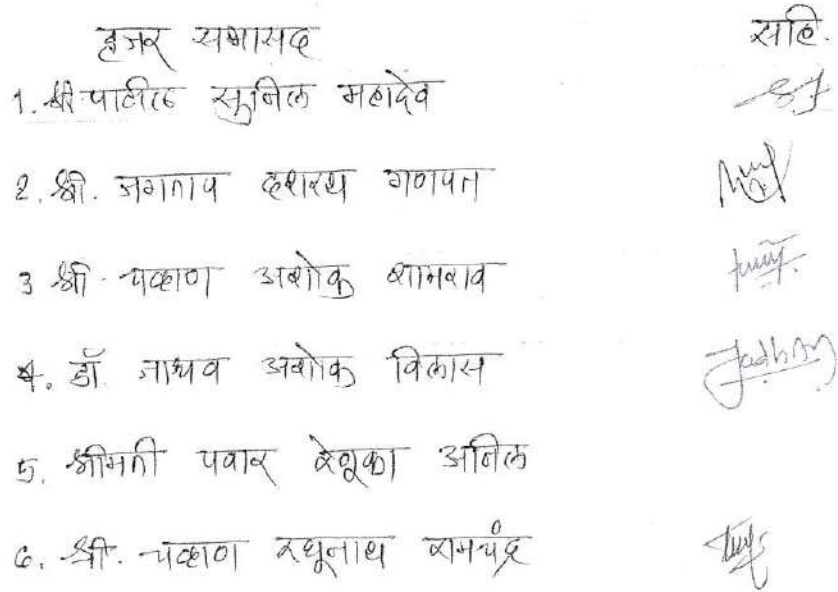 हजर सभासद सहि.
1. श्री पाटील सुनिल महादेव
2. श्री. जगताप दशरथ गणपत
3 श्री. चव्हाण अशोक शामराव
4. डॉ. जाधव अशोक विलास Jadhav
5. श्रीमती पवार रेणूका अनिल
6. श्री. चव्हाण रघूनाथ रामचंद्र